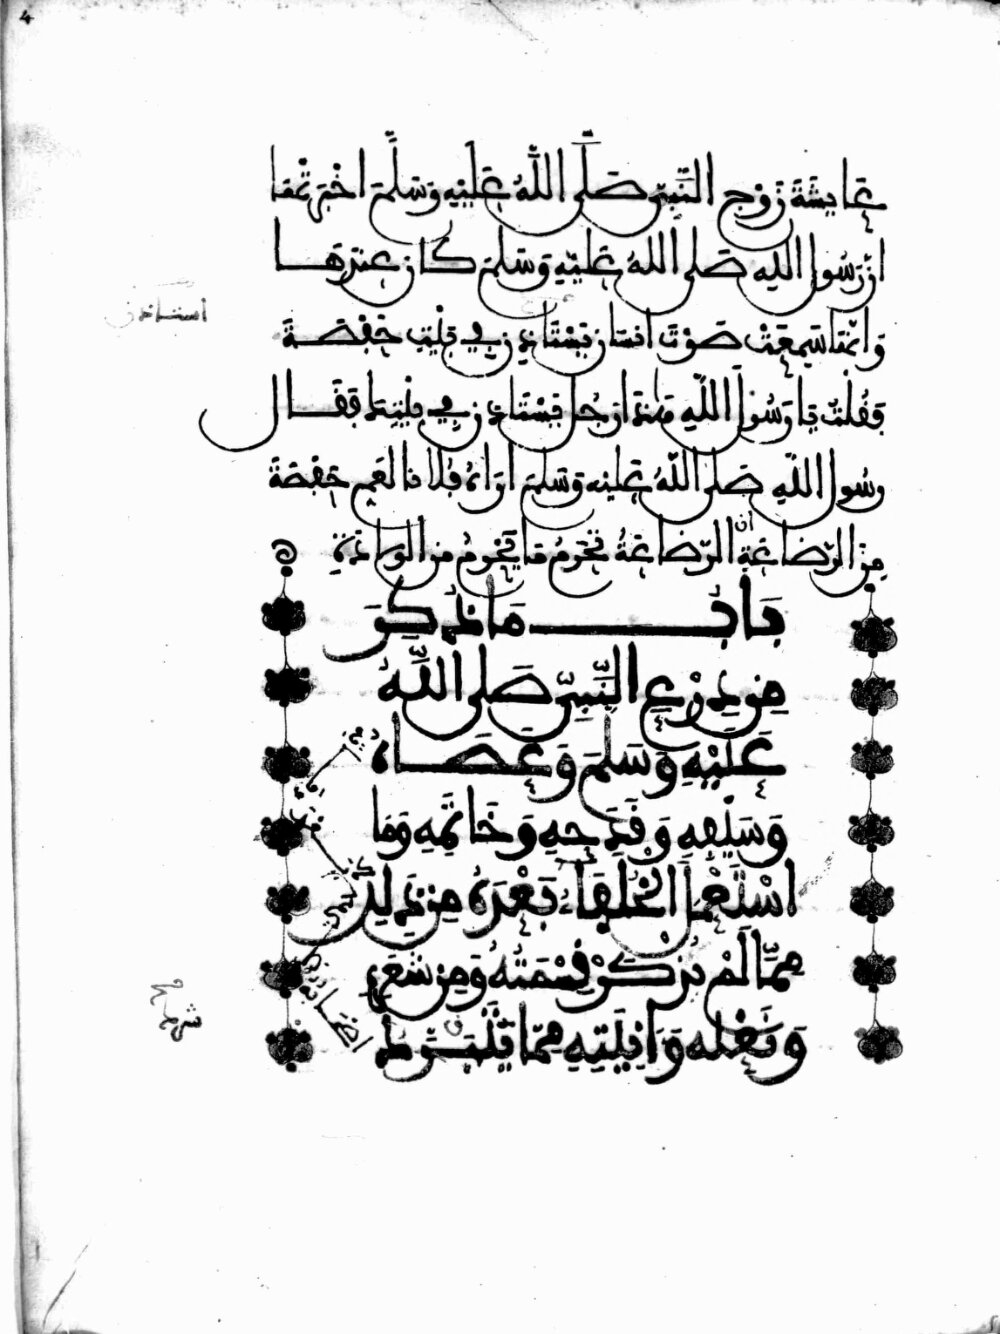 4
عَايِشَةَ زَوْجِ النَّبِيِّ صَلَّى اللَّهُ عَلَيْهِ وَسَلَّمَ اخْبَرَتْهَا
انَّ رَسُولَ اللهِ صَلى اللهُ عَلَيْهِ وَسَلمَ كَانَ عِندَهَا
وَانَّهَا سَمِعَتْ صَوْتَ انسَانٍ يَسْتَاذِنُ فِي بَيْتِ حَفْصَةَ
فَقُلْتُ يَا رَسُولَ اللَّهِ هَذَا رَجُلٌ يَسْتَاذِنُ فِي بَيْتِكَ فَقَالَ
رسُولُ اللهِ صَلى اللهُ عَلَيْهِ وَسَلمَ ارَاهُ فُلَانًا لِعَمِّ حَفْصَةَ
مِنَ الرَّضَاعَةِ ان الرَّضَاعَةُ تُحَرِّمُ مَا يَحْرُمُ مِنَ الوِلَادَةِ
بَابُ مَا ذُكِرَ
مِن دِرْعِ النَّبِيِّ صَلى اللَّهُ
عَلَيْهِ وَسَلمَ وَعَصَاهُ
وَسَيْفِهِ وَقَدَحِهِ وَخَاتَمِهِ وَمَا
اسْتَعْمَلَ الْخُلَفَاءُ بَعْدَهُ مِن ذَلِكَ
مِمَّا لَمْ تُذْكَرْ قِسْمَتُهُ وَمِن شَعَرِهِ
وَنَعْلِهِ وَءَانِيَتِهِ مِمَّا تَبَرَّكَ
استاذن